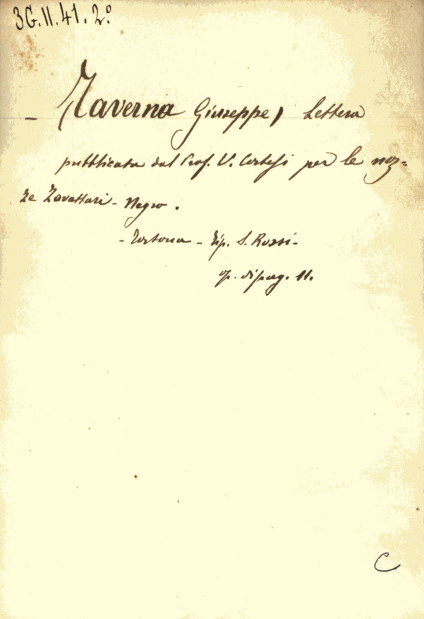 3G.II.41.2º
- Taverna Giuseppe) Lettera
pubblicata dal Prof. V. Cortesi per le noz=
ze Zavattari - Negro.
- Tortona - Tip. S. Rossi -
op. di pag. 11.
C